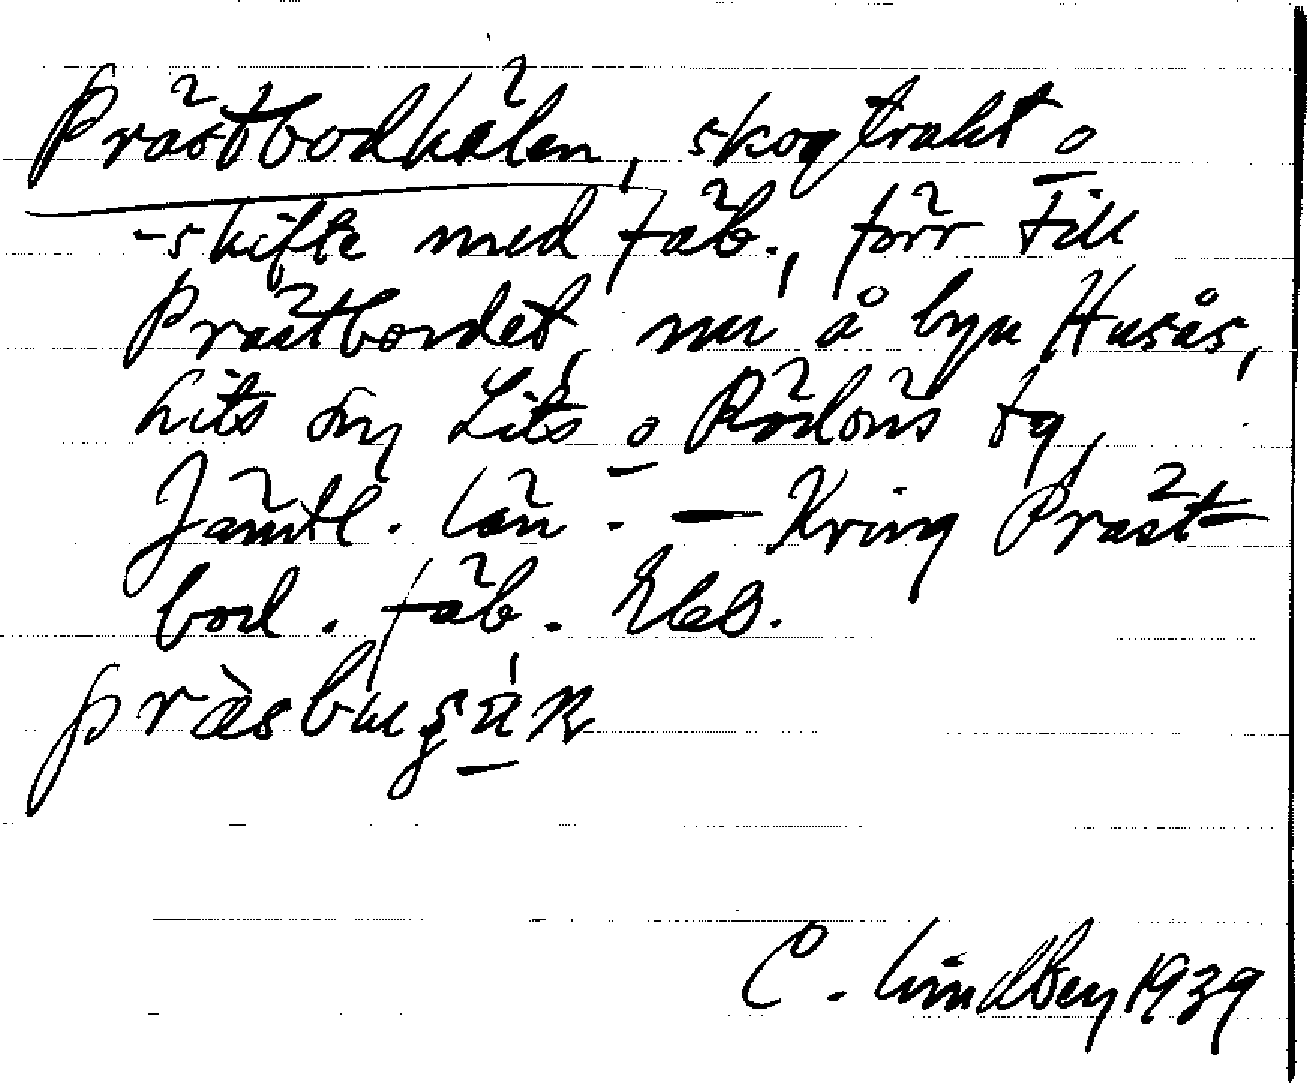 Prästbodkälen, skogtrakt o
-skifte med fäb., förr till
Prästbordet, nu å byn Husås,
Lits sn, Lits o Rödöns tg,
Jämtl. län. — Kring Präst-
bod. fäb.
C. Lindberg 1939